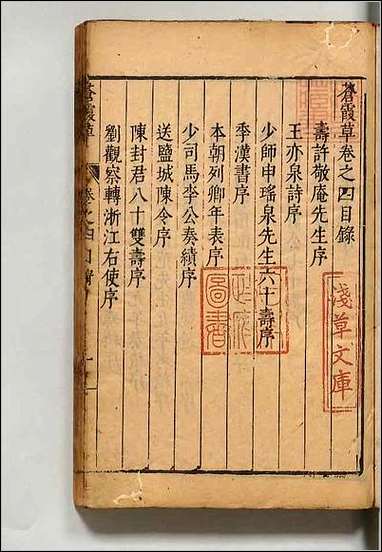 蒼霞草卷之四目錄
壽許敬庵先生序
王亦泉詩序
少師申瑤泉先生六十壽序
季漢書序
本朝列卿年表序
少司馬李公奏績序
送鹽城陳令序
陳封君八十雙壽序
劉觀察轉浙江右使序
蒼霞草
卷之四
淺草文庫
圖書